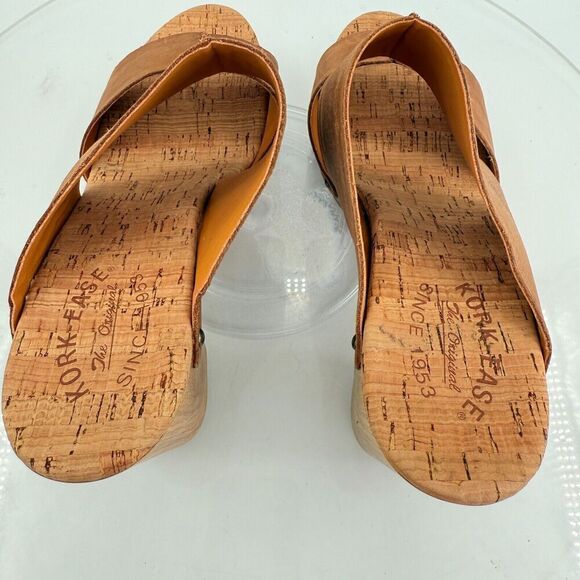 KORK-EASE®
The Original
SINCE 1953
KORK-EASE®
The Original
SINCE 1953